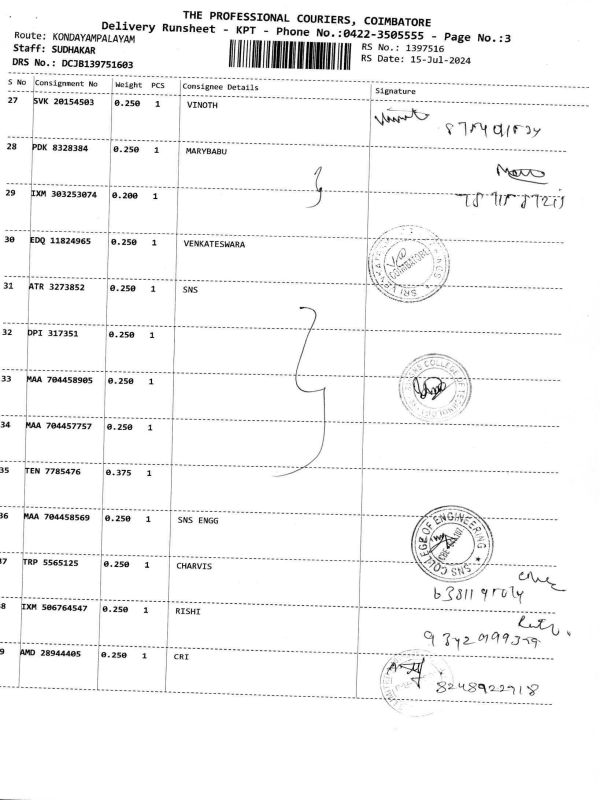 THE PROFESSIONAL COURIERS, COIMBATORE
Delivery Runsheet - KPT - Phone No.:0422-3505555 - Page No.:3
Route: KONDAYAMPALAYAM
Staff: SUDHAKAR
DRS No.: DCJB139751603
RS No.: 1397516
RS Date: 15-Jul-2024
S No Consignment No Weight PCS Consignee Details Signature
27 SVK 20154503 0.250 1 VINOTH
28 PDK 8328384 0.250 1 MARYBABU
29 IXM 303253074 0.200 1
30 EDQ 11824965 0.250 1 VENKATESWARA
COIMBATORE
31 ATR 3273852 0.250 1 SNS
32 DPI 317351 0.250 1
33 MAA 704458905 0.250 1
34 MAA 704457757 0.250 1
35 TEN 7785476 0.375 1
36 MAA 704458569 0.250 1 SNS ENGG
SNS COLLEGE OF ENGINEERING
37 TRP 5565125 0.250 1 CHARVIS
38 IXM 506764547 0.250 1 RISHI
39 AMD 28944405 0.250 1 CRI
8248922718